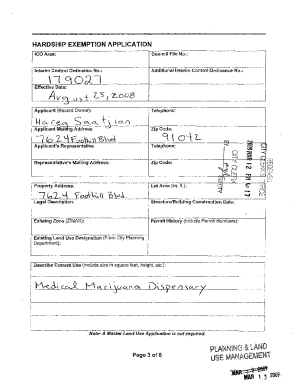 HARDSHIP EXEMPTION APPLICATION
ICO Area:
Council File No.:
Interim Control Ordinance No.:
179027
Additional Interim Control Ordinance No.:
Effective Date:
August 25, 2008
Applicant (Record Owner)
Hareg Saatjian
Telephone:
Applicant Mailing Address:
7624 Foothill Blvd
Zip Code:
91042
Applicant's Representative
Telephone:
Representative's Mailing Address:
Zip Code:
CITY CLERK
BY
Property Address:
7624 Foothill Blvd.
Lot Area (sq. ft.):
Legal Description:
Structure/Building Construction Date:
Existing Zone (ZIMAS):
Permit History (Include Permit Numbers):
Existing Land Use Designation (From City Planning
Department):
Describe Current Use (Include size in square feet, height, etc.):
Medical Marijuana Dispensary
Note: A Master Land Use Application is not required.
Page 3 of 6
PLANNING & LAND
USE MANAGEMENT
MAR 13 2009